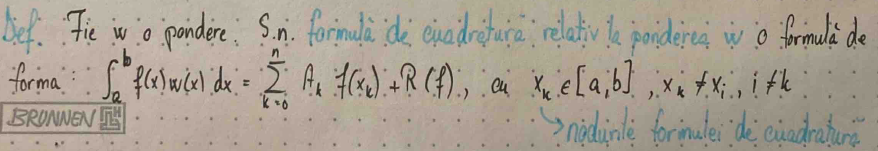 Def. Fie w o pondere. S.n. formulă de cuadratură relativ la ponderea w o formulă de
forma: ∫_a^b f(x)w(x) dx = Σ_{k=0}^n A_k f(x_k) + R(f), cu x_k ∈ [a,b], x_k ≠ x_i, i ≠ k
BRONNEN
→ nodurile formulei de cuadratură